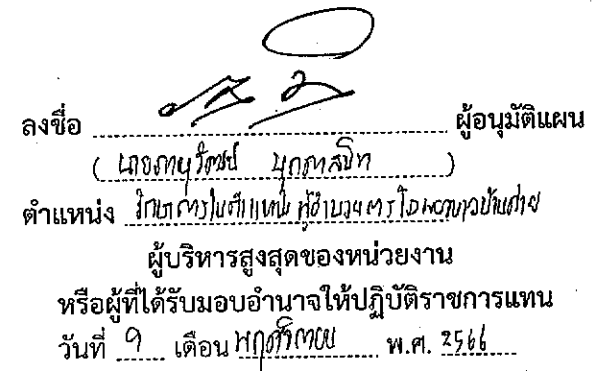 ลงชื่อ ผู้อนุมัติแผน
(นายภาณุวัฒน์)
ตำแหน่ง รักษาการในตำแหน่ง ผู้อำนวยการโรงพยาบาลบ้านค่าย
ผู้บริหารสูงสุดของหน่วยงาน
หรือผู้ที่ได้รับมอบอำนาจให้ปฏิบัติราชการแทน
วันที่ 9 เดือน พฤศจิกายน พ.ศ. 2566